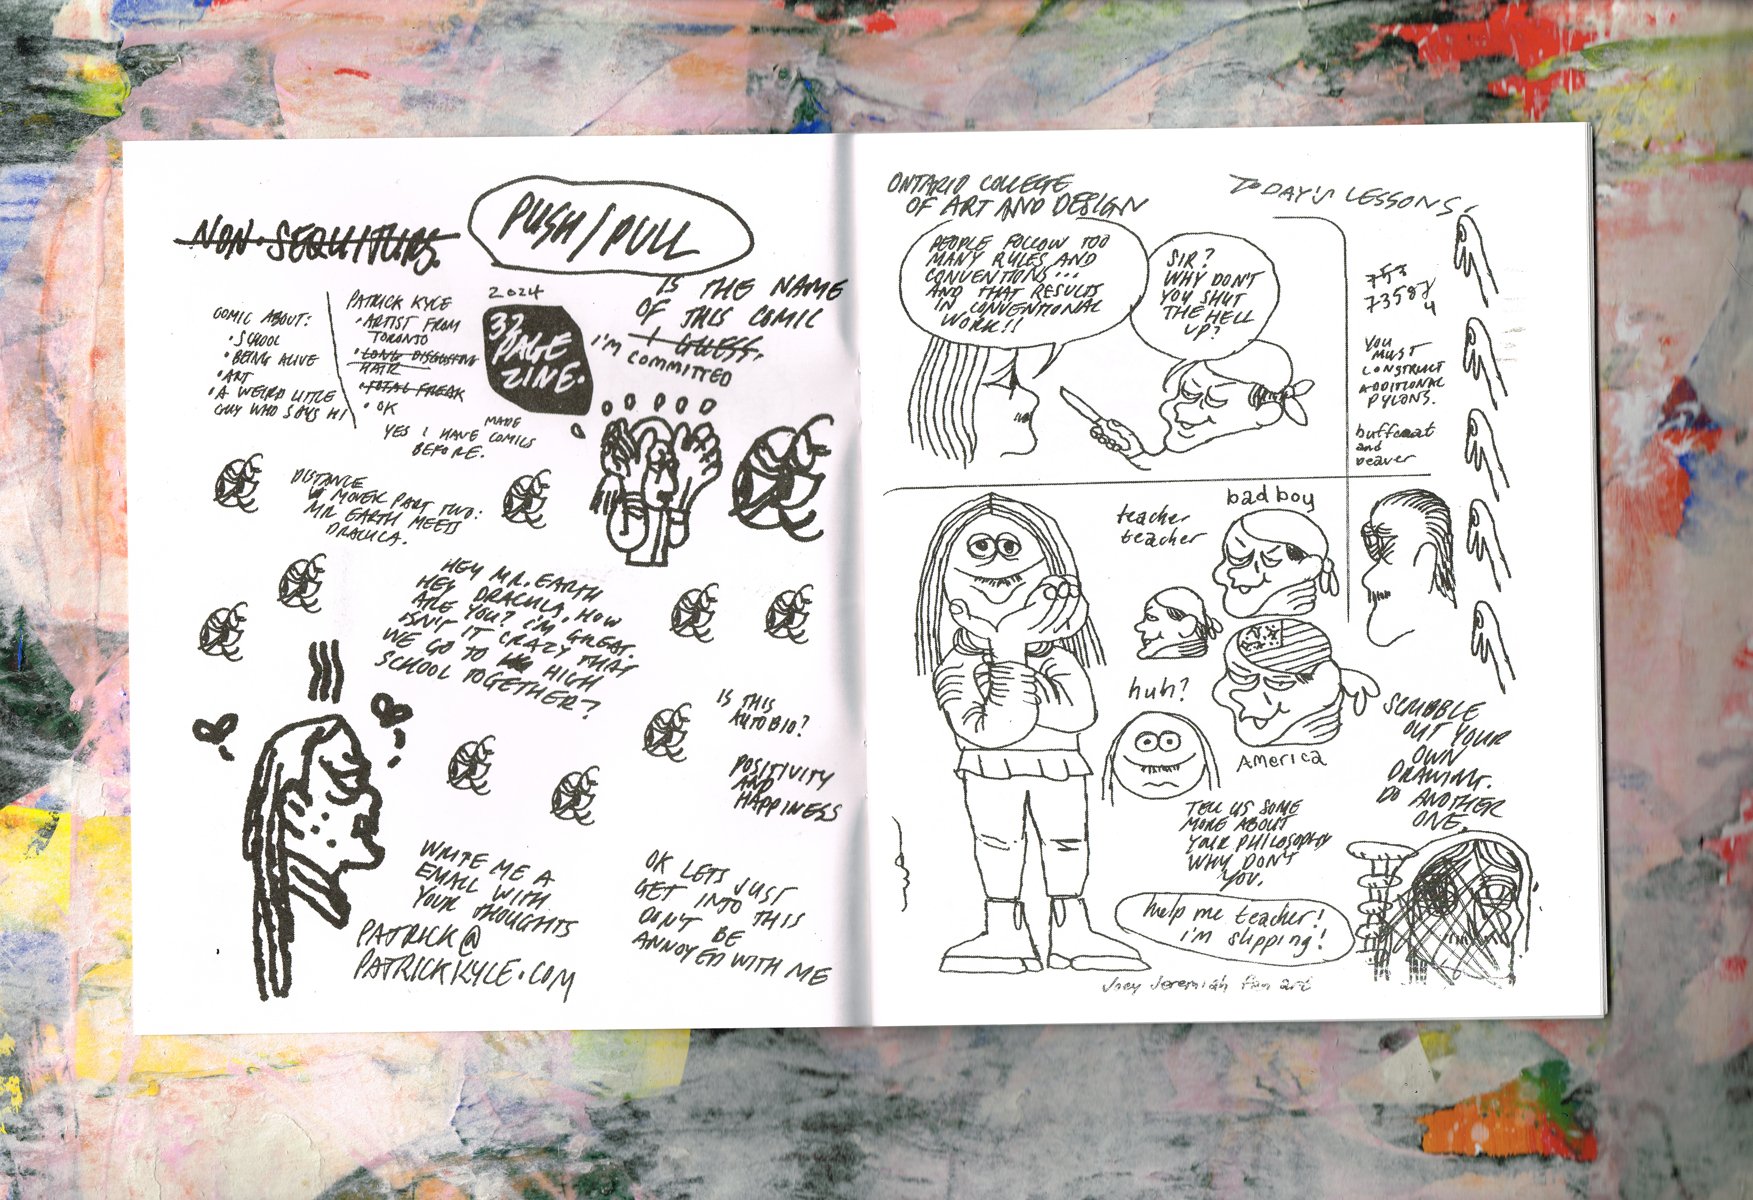 NON-SEQUITURS.
PUSH/PULL
IS THE NAME
OF THIS COMIC
I GUESS.
I'M COMMITTED
2024
32
PAGE
ZINE.
COMIC ABOUT:
• SCHOOL
• BEING ALIVE
• ART
• A WEIRD LITTLE
GUY WHO SAYS HI
PATRICK KYLE
• ARTIST FROM
TORONTO
• LONG DISGUSTING
HAIR
• TOTAL FREAK
• OK
YES I HAVE MADE COMICS
BEFORE.
DISTANCE
MOVER PART TWO:
MR. EARTH MEETS
DRACULA.
HEY MR. EARTH
HEY DRACULA, HOW
ARE YOU? I'M GREAT.
ISN'T IT CRAZY THAT
WE GO TO HIGH
SCHOOL TOGETHER?
IS THIS
AUTOBIO?
POSITIVITY
AND
HAPPINESS
WRITE ME A
EMAIL WITH
YOUR THOUGHTS
PATRICK@
PATRICKKYLE.COM
OK LETS JUST
GET INTO THIS
DON'T BE
ANNOYED WITH ME
ONTARIO COLLEGE
OF ART AND DESIGN
PEOPLE FOLLOW TOO
MANY RULES AND
CONVENTIONS...
AND THAT RESULTS
IN CONVENTIONAL
WORK!!
SIR?
WHY DON'T
YOU SHUT
THE HELL
UP?
TODAY'S LESSONS.
YOU
MUST
CONSTRUCT
ADDITIONAL
PYLONS.
buttcoat
and
beaver
teacher
teacher
bad boy
huh?
America
TELL US SOME
MORE ABOUT
YOUR PHILOSOPHY
WHY DON'T
YOU.
SCRIBBLE
OUT YOUR
OWN
DRAWING.
DO ANOTHER
ONE.
help me teacher!
i'm slipping!
Joey Jeremiah fan art